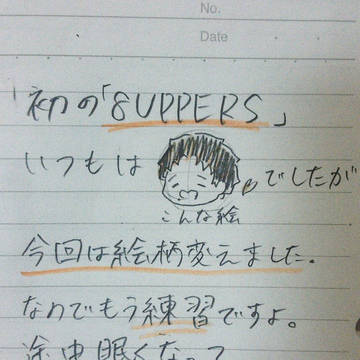 No.
Date
初の「8UPPERS」
いつもは でしたが
こんな絵
今回は絵柄変えました.
なのでもう練習ですよ。
途中眠くなって